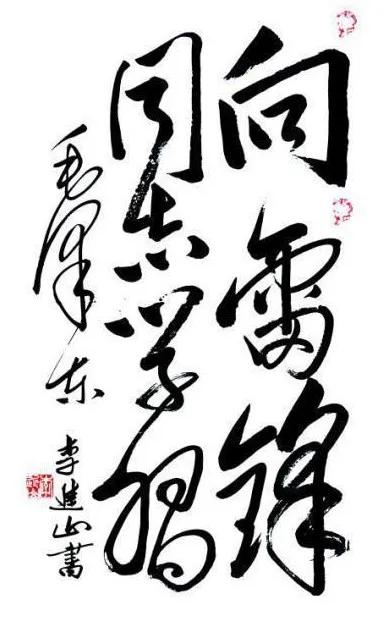 向雷锋
同志学習
毛泽东
李進山書